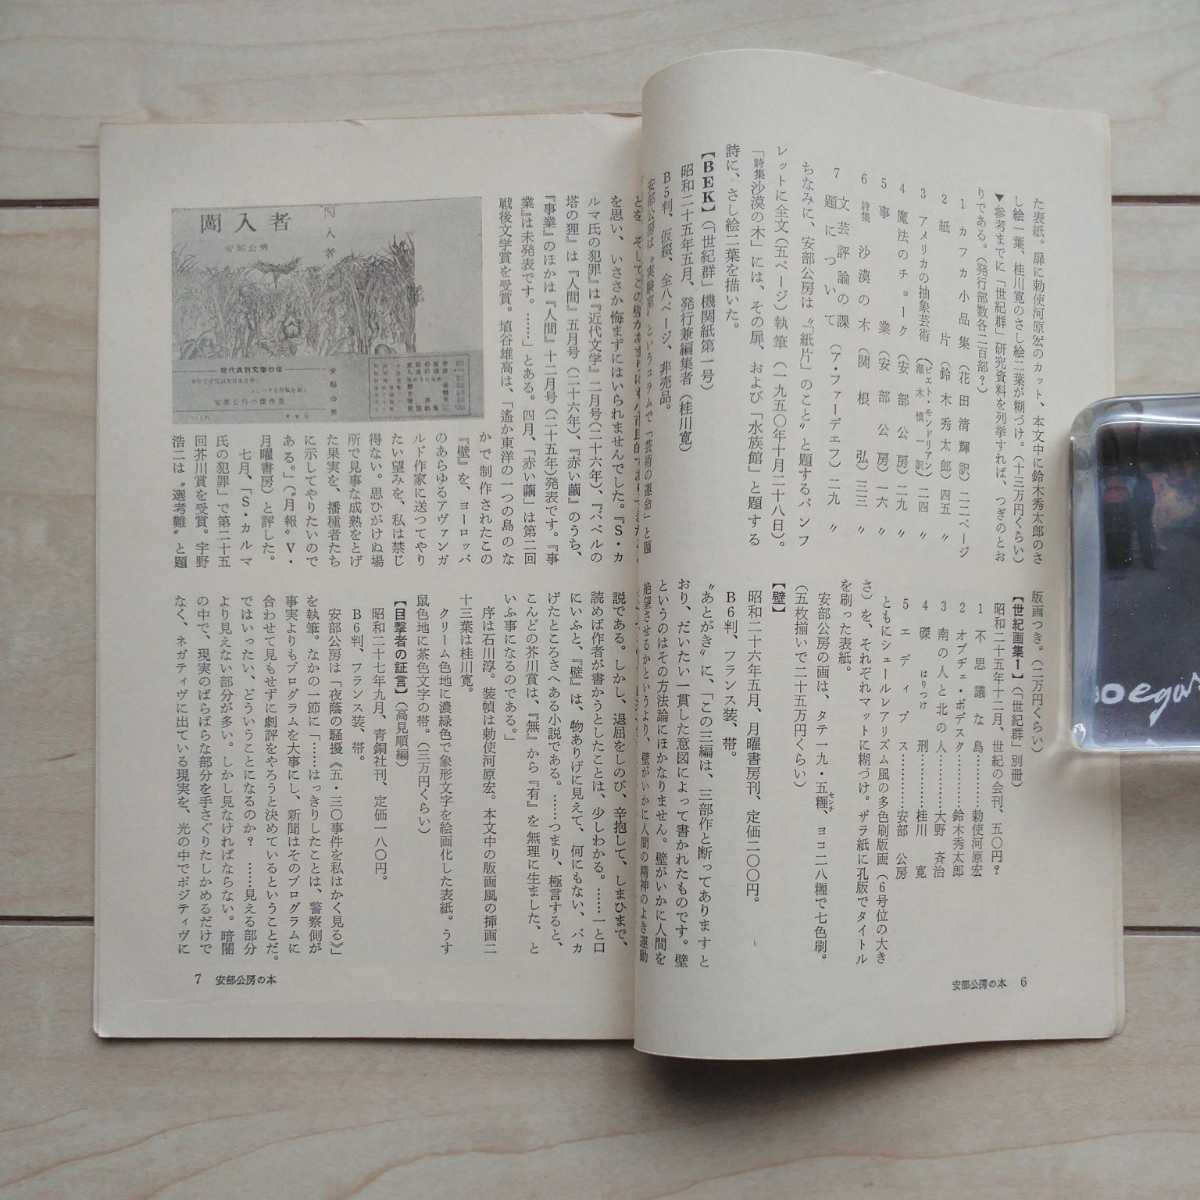 た表紙。扉に勅使河原宏のカット、本文中に鈴木秀太郎のさ
し絵一葉、桂川寛のさし絵二葉が糊づけ。(十三万円くらい)
▼参考までに「世紀群」研究資料を列挙すれば、つぎのとお
りである。(発行部数各二百部?)
1 カフカ小品集(花田清輝訳)二二ページ
2 紙片(鈴木秀太郎)四五〃
3 アメリカの抽象芸術(ピエト・モンドリアン)(瀬木慎一訳)二四〃
4 魔法のチョーク(安部公房)二九〃
5 事業(安部公房)一六〃
6 詩集 沙漠の木(関根弘)三三〃
7 文芸評論の課題について(ア・ファーデエフ)二九〃
ちなみに、安部公房は〝「紙片」のこと〟と題するパンフ
レットに全文(五ページ)執筆(一九五〇年十月二十八日)。
「詩集 沙漠の木」には、その扉、および「水族館」と題する
詩に、さし絵二葉を描いた。
【BEK】(「世紀群」機関紙第一号)
昭和二十五年五月、発行兼編集者(桂川寛)
B5判、仮綴、全八ページ、非売品。
版画つき。(二万円くらい)
【世紀画集1】(「世紀群」別冊)
昭和二十五年十二月、世紀の会刊、五〇円?
1 不思議な島…………勅使河原宏
2 オブヂェ・ボデスタ……鈴木秀太郎
3 南の人と北の人………大野斉治
4 磔刑 はりつけ…………桂川寛
5 エディプス…………安部公房
ともにシュールレアリズム風の多色刷版画(6号位の大き
さ)を、それぞれマットに糊づけ。ザラ紙に孔版でタイトル
を刷った表紙。
安部公房の画は、タテ一九・五糎、ヨコ二八糎で七色刷。
センチ
(五枚揃いで二十五万円くらい)
【壁】
昭和二十六年五月、月曜書房刊、定価二〇〇円。
B6判、フランス装、帯。
〝あとがき〟に、「この三編は、三部作と断ってありますと
おり、だいたい一貫した意図によって書かれたものです。壁
というのはその方法論にほかなりません。壁がいかに人間を
絶望させるかというより、壁がいかに人間の精神のよき運動
安部公房の本 6
を思い、いささか悔まずにはいられませんでした。『S・カ
ルマ氏の犯罪』は『近代文学』二月号(二十六年)、『バベルの
塔の狸』は『人間』五月号(二十六年)、『赤い繭』のうち、
『事業』のほかは『人間』十二月号(二十五年)発表です。『事
業』は未発表です。……」とある。四月、「赤い繭」は第二回
戦後文学賞を受賞。埴谷雄高は、「遙か東洋の一つの島のな
かで制作されたこの
『壁』を、ヨーロッパ
のあらゆるアヴァンガ
ルド作家に送ってやり
たい望みを、私は禁じ
得ない。思ひがけぬ場
所で見事な成熟をとげ
た果実を、播種者たち
に示してやりたいので
ある。」(『月報』V・
月曜書房)と評した。
七月、「S・カルマ
氏の犯罪」で第二十五
回芥川賞を受賞。宇野
浩二は〝選考難〟と題
闖入者
安部公房
説である。しかし、退屈をしのび、辛抱して、しまひまで、
読めば作者が書かうとしたことは、少しわかる。……一と口
にいふと、『壁』は、物ありげに見えて、何にもない、バカ
げたところさへある小説である。……つまり、極言すると、
こんどの芥川賞は、『無』から『有』を無理に生ました、と
いふ事になるのである。」
序は石川淳。装幀は勅使河原宏。本文中の版画風の挿画二
十三葉は桂川寛。
クリーム色地に濃緑色で象形文字を絵画化した表紙。うす
鼠色地に茶色文字の帯。(三万円くらい)
【目撃者の証言】(高見順編)
昭和二十七年九月、青銅社刊、定価一八〇円。
B6判、フランス装、帯。
安部公房は「夜蔭の騒擾《五・三〇事件を私はかく見る》」
を執筆。なかの一節に「……はっきりしたことは、警察側が
事実よりもプログラムを大事にし、新聞はそのプログラムに
合わせて見もせずに劇評をやろうと決めているということだ。
ではいったい、どういうことになるのか? ……見える部分
より見えない部分が多い。しかし見なければならない。暗闇
の中で、現実のばらばらな部分を手さぐりたしかめるだけで
なく、ネガティヴに出ている現実を、光の中でポジティヴに
7 安部公房の本